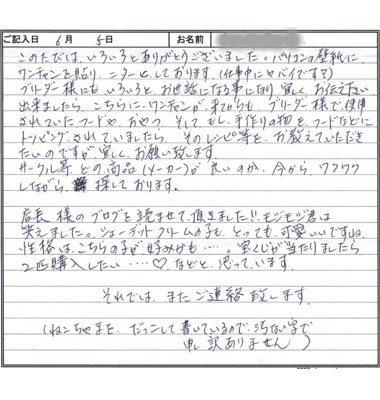 ご記入日 6月 5日 お名前
このたびは、いろいろとありがとうございました。パソコンの壁紙に
ワンチャンを貼り、ニターとしております。(仕事中にヤバイです?)
ブリーダー様にも、いろいろと、お世話になる事になり、宜しく、お伝えさい
出来ましたら、こちらに、ワンチャンが、来てからも、ブリーダー様で、使用
されていたフードや、おやつ、そして、もし、手作りの物を、フードなどに
トッピングされていましたら、そのレシピ等を、お教えていただき
たいのですが、宜しく、お願い致します。
サークル等、どの商品(メーカー)が良いのか、今から、ワクワク
しながら、探しております。
店長様のブログを読ませて頂きました!!モジモジ君は
笑えました。ショーデットクリームの子も、とっても、可愛いいですね
性格は、こちらの子が好みかも……。宝くじが当たりましたら
2匹購入したい……♡などと、思っています。
それでは、またご連絡致します。
(ねこちゃまを、だっこして書いているので、汚ない字で
申し訳ありません)